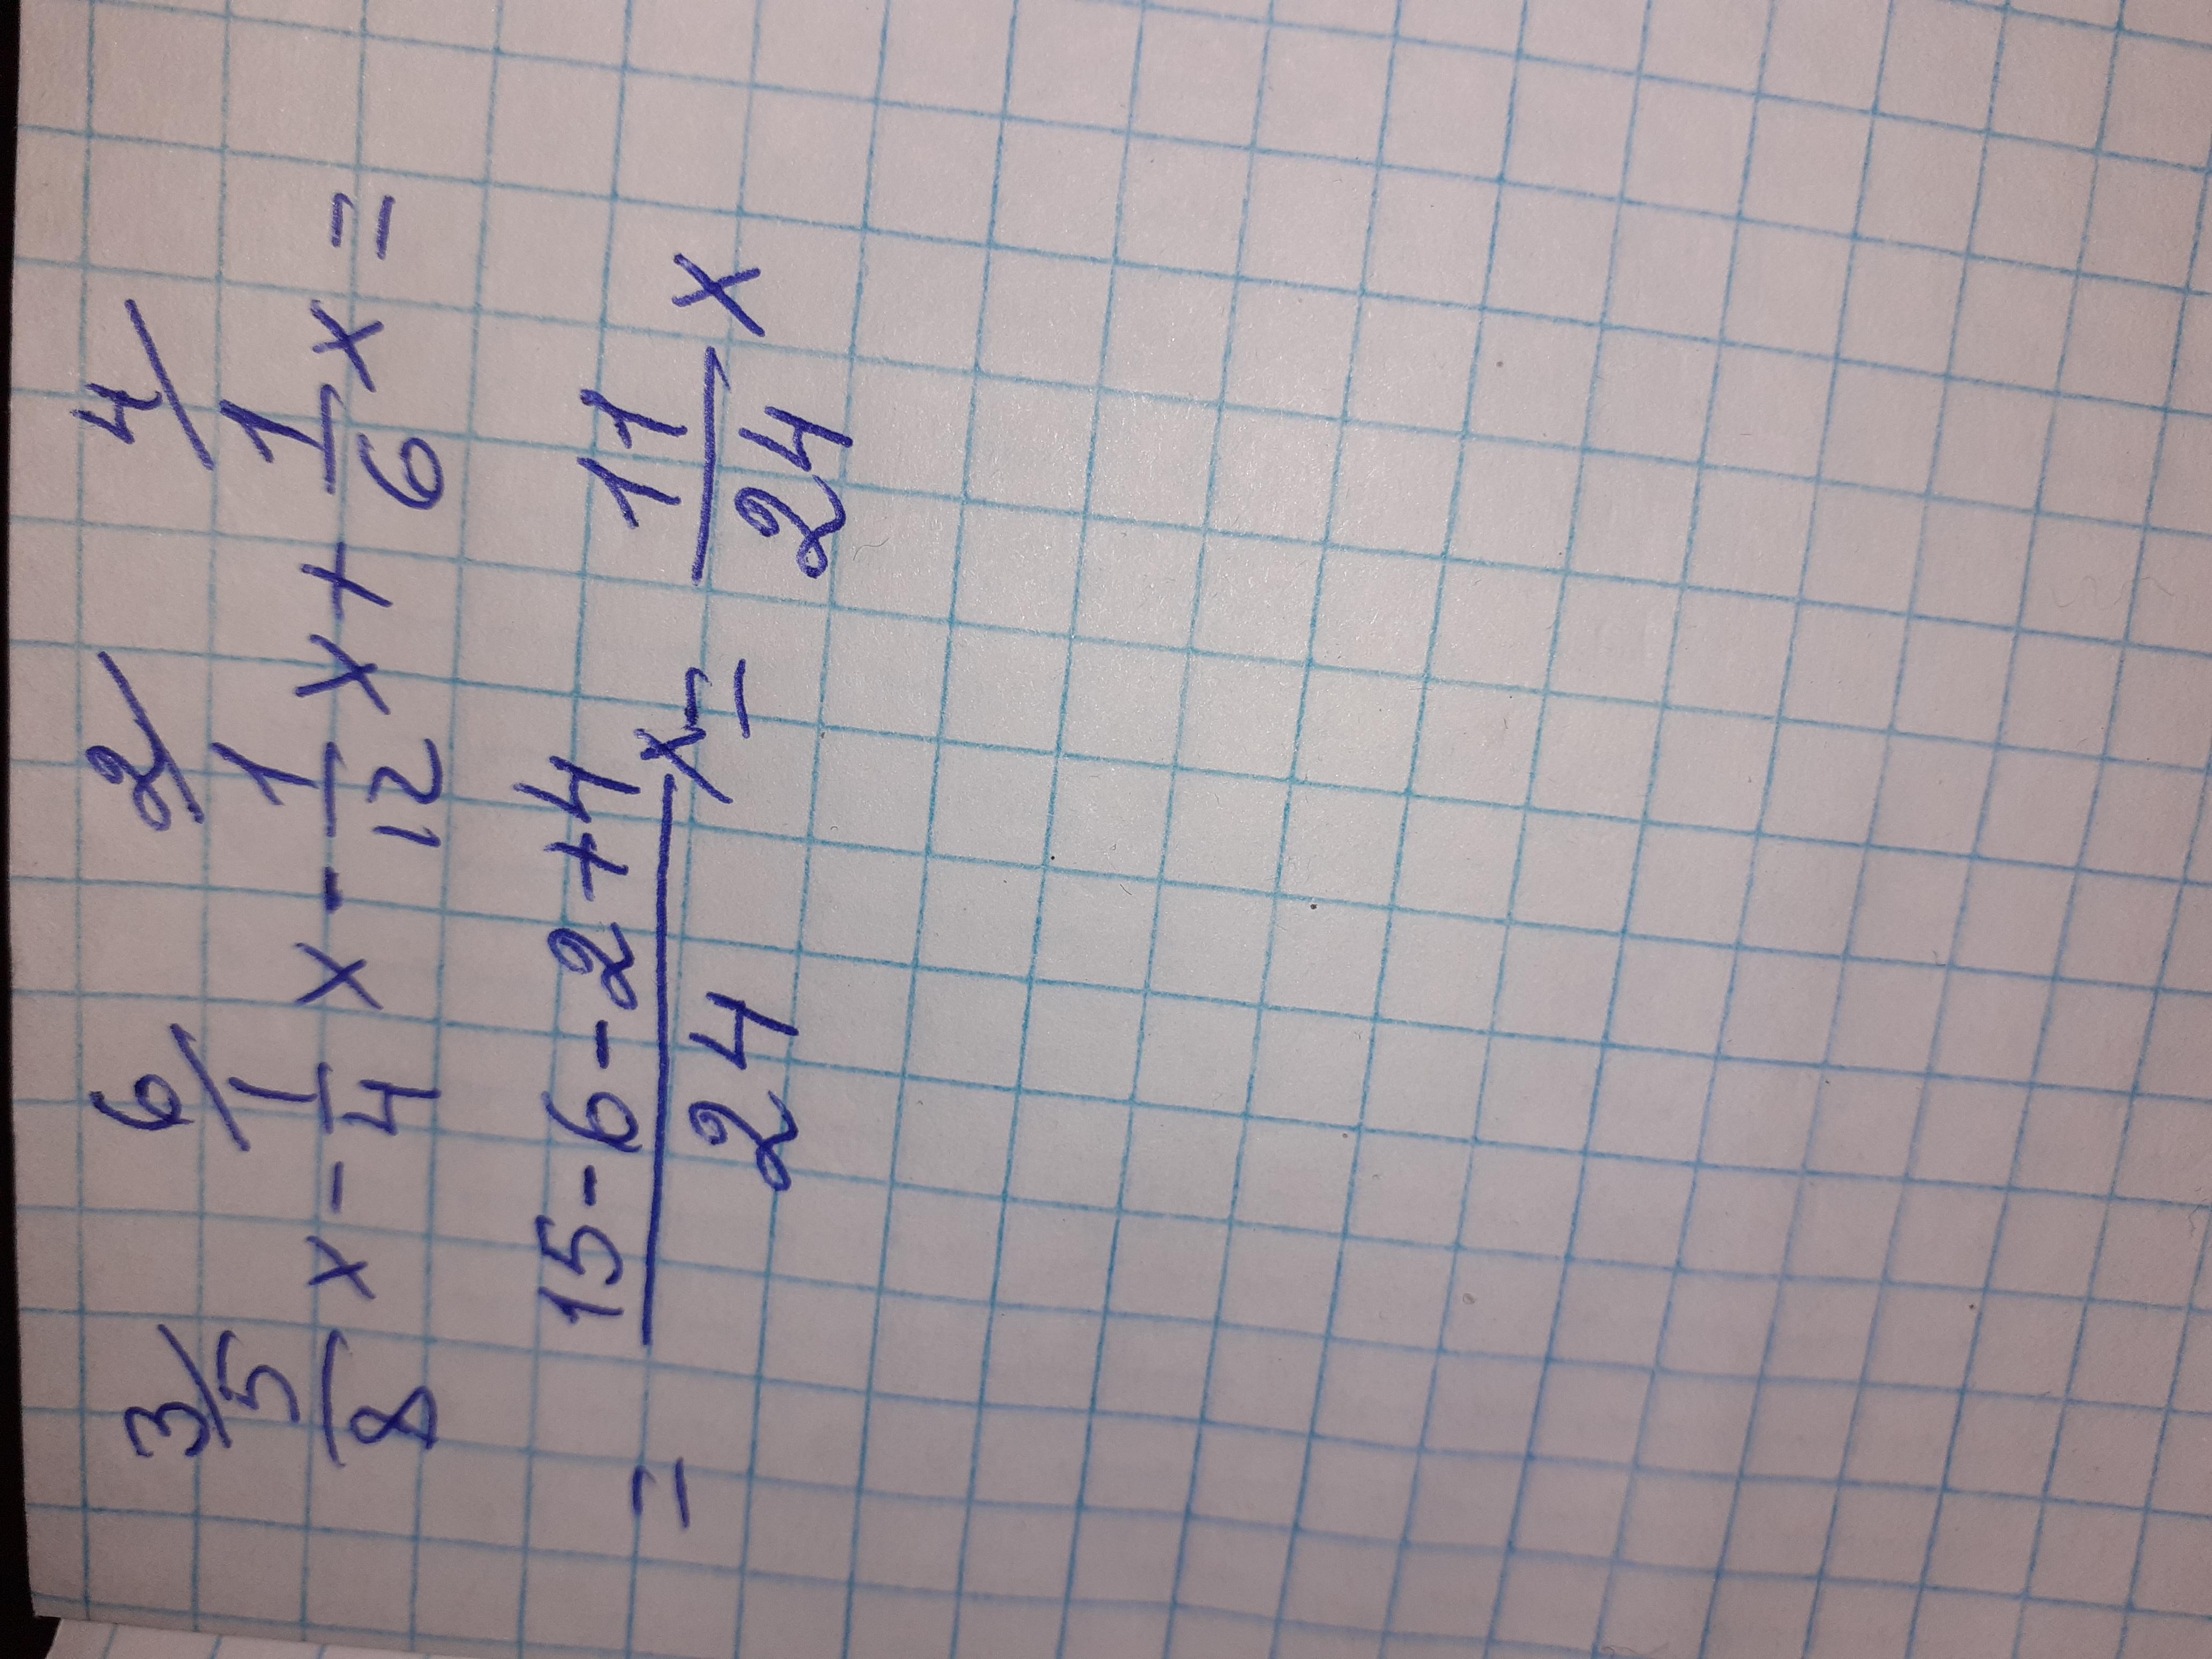 3/ 6/ 2/ 4/
5/8 x - 1/4 x - 1/12 x + 1/6 x =
= (15-6-2+4)/24 x = 11/24 x